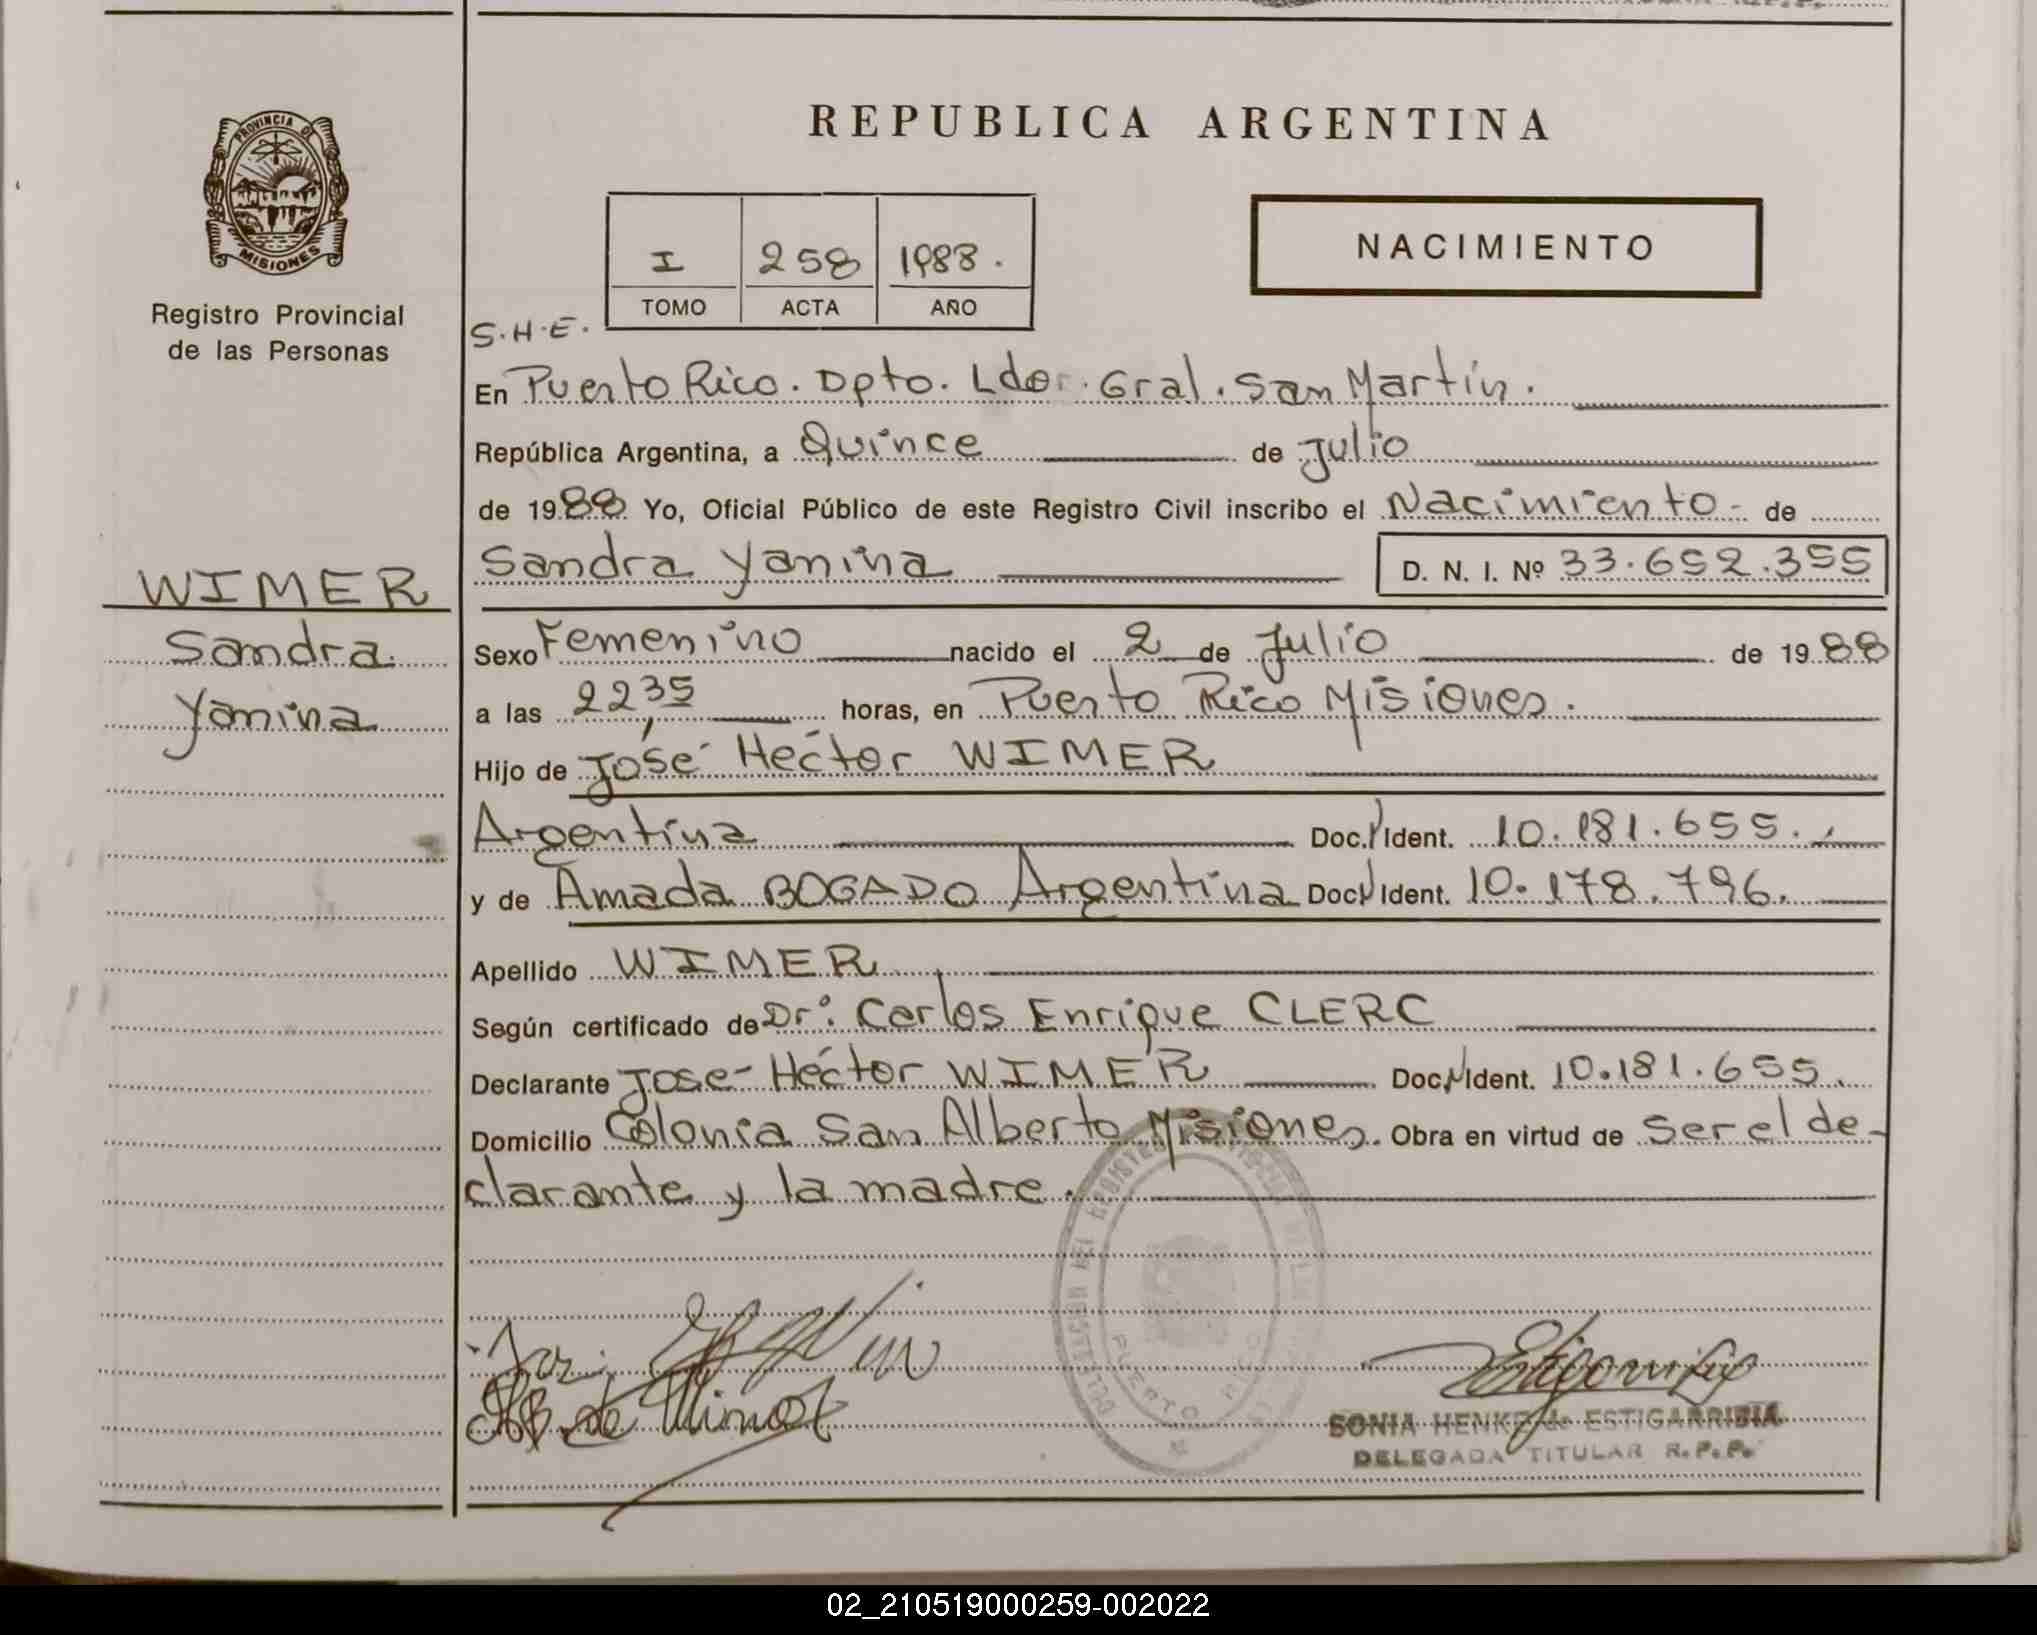 REPUBLICA ARGENTINA
PROVINCIA DE
MISIONES
Registro Provincial
de las Personas
NACIMIENTO
I 258 1988.
TOMO ACTA AÑO
S.H.E.
En Puerto Rico. Dpto. Ldor. Gral. San Martín.
República Argentina, a Quince de Julio
de 1988 Yo, Oficial Público de este Registro Civil inscribo el Nacimiento- de
Sandra Yanina D. N. I. Nº 33.652.355
WIMER
Sandra
Yanina
Sexo Femenino nacido el 2 de Julio de 1988
a las 22,35 horas, en Puerto Rico Misiones.
Hijo de José Héctor WIMER
Argentina Doc. Ident. 10.181.655.
y de Amada BOGADO Argentina Doc. Ident. 10.178.796.
Apellido WIMER
Según certificado de Dr. Carlos Enrique CLERC
Declarante José Héctor WIMER Doc. Ident. 10.181.655.
Domicilio Colonia San Alberto Misiones. Obra en virtud de Ser el de-
clarante y la madre.
PUERTO RICO
SONIA HENKE de ESTIGARRIBIA
DELEGADA TITULAR R.P.P.
02_210519000259-002022